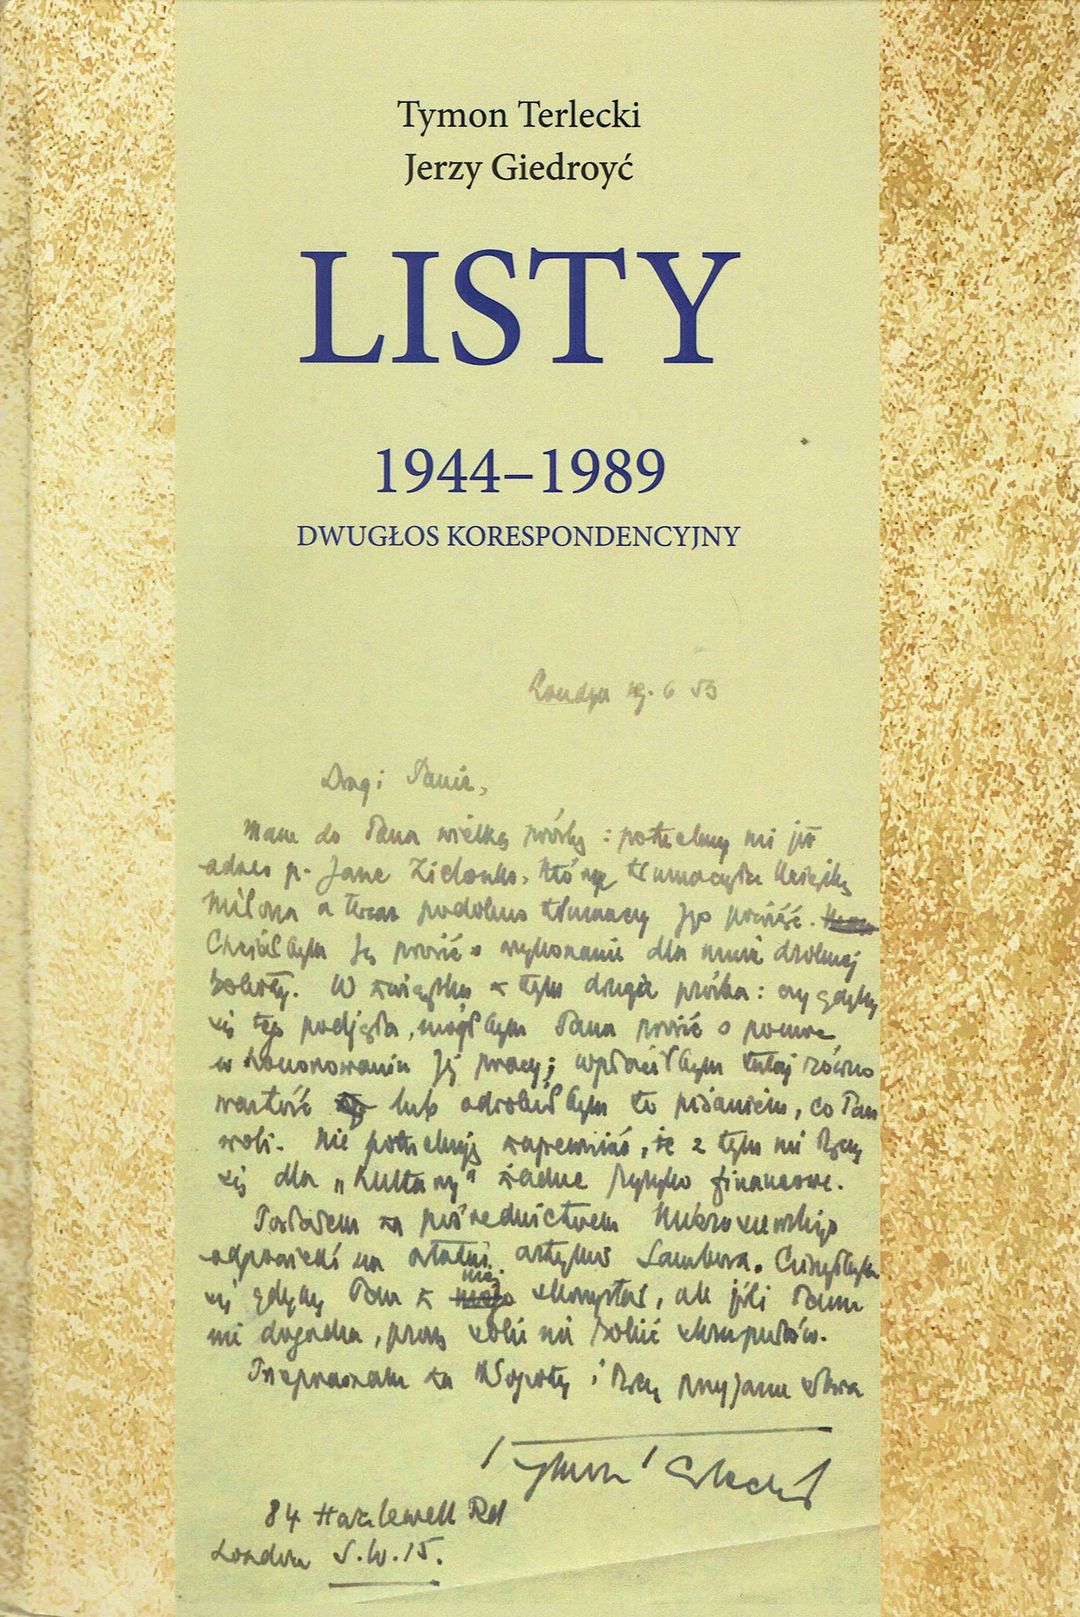 Tymon Terlecki
Jerzy Giedroyć
LISTY
1944–1989
DWUGŁOS KORESPONDENCYJNY
Londyn 19. 6 53
Drogi Panie,
Mam do Pana wielką prośbę : potrzebny mi jest
adres p. Jane Zielonko, która tłumaczyła książkę
Miłosza a teraz podobno tłumaczy jego powieść.
Chciałbym ją prosić o wykonanie dla mnie drobnej
roboty. W związku z tym druga prośba : czy gdyby
się tego podjęła, mógłbym Pana prosić o pomoc
w honorowaniu jej pracy; wpłaciłbym tutaj równo
wartość lub odrobiłbym to pisaniem, co Pan
woli. Nie potrzebuję zapewniać, że z tym nie łączy
się dla „Kultury" żadne ryzyko finansowe.
Posłałem za pośrednictwem
odpowiedź na ostatni artykuł Sambora. Cieszyłbym
się gdyby Pan z niej skorzystał, ale jeśli Panu
nie dogadza, proszę sobie nie robić skrupułów.
Przepraszam za kłopoty i łączę przyjazne słowa
Tymon Terlecki
84 Hazlewell Rd
London S.W.15.